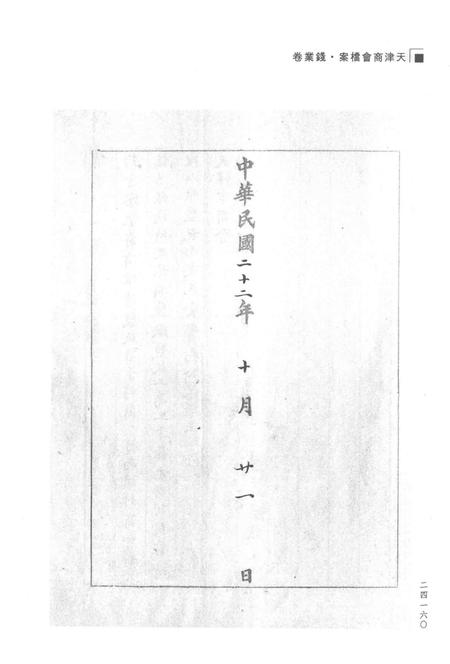 卷業錢・案檔會商津天
中華民國二十二年十月廿一日
二四一六〇